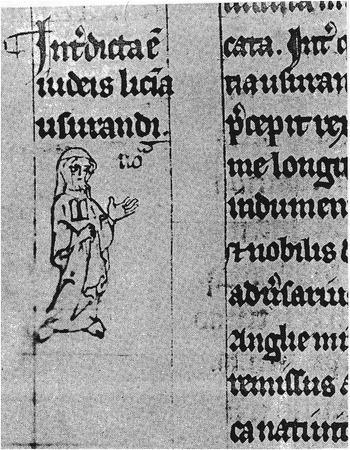 Int'dicta ē
iudeis licīa
usurandi.
noᵃ
cata. Int'
tia usuran
p'cepit re
me longi
indumen
⁊ nobilis
adu'sariu
Anglie mi
remissus
ca natiuit